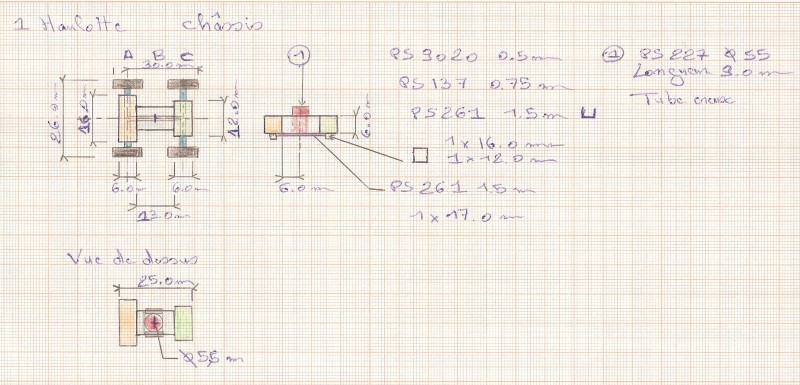 1 Haulotte châssis
A B C
30.0m
26.0m
16.0m
12.0m
6.0m
6.0m
13.0m
1
6.0m
6.0m
PS 3020 0.5 m
PS 137 0.75 m
PS 261 1.5 m
1 x 16.0 m
1 x 12.0 m
PS 261 1.5 m
1 x 17.0 m
1 PS 227 Ø 55
Longueur 3.0 m
Tube creux
Vue de dessus
25.0m
Ø 5.5 m